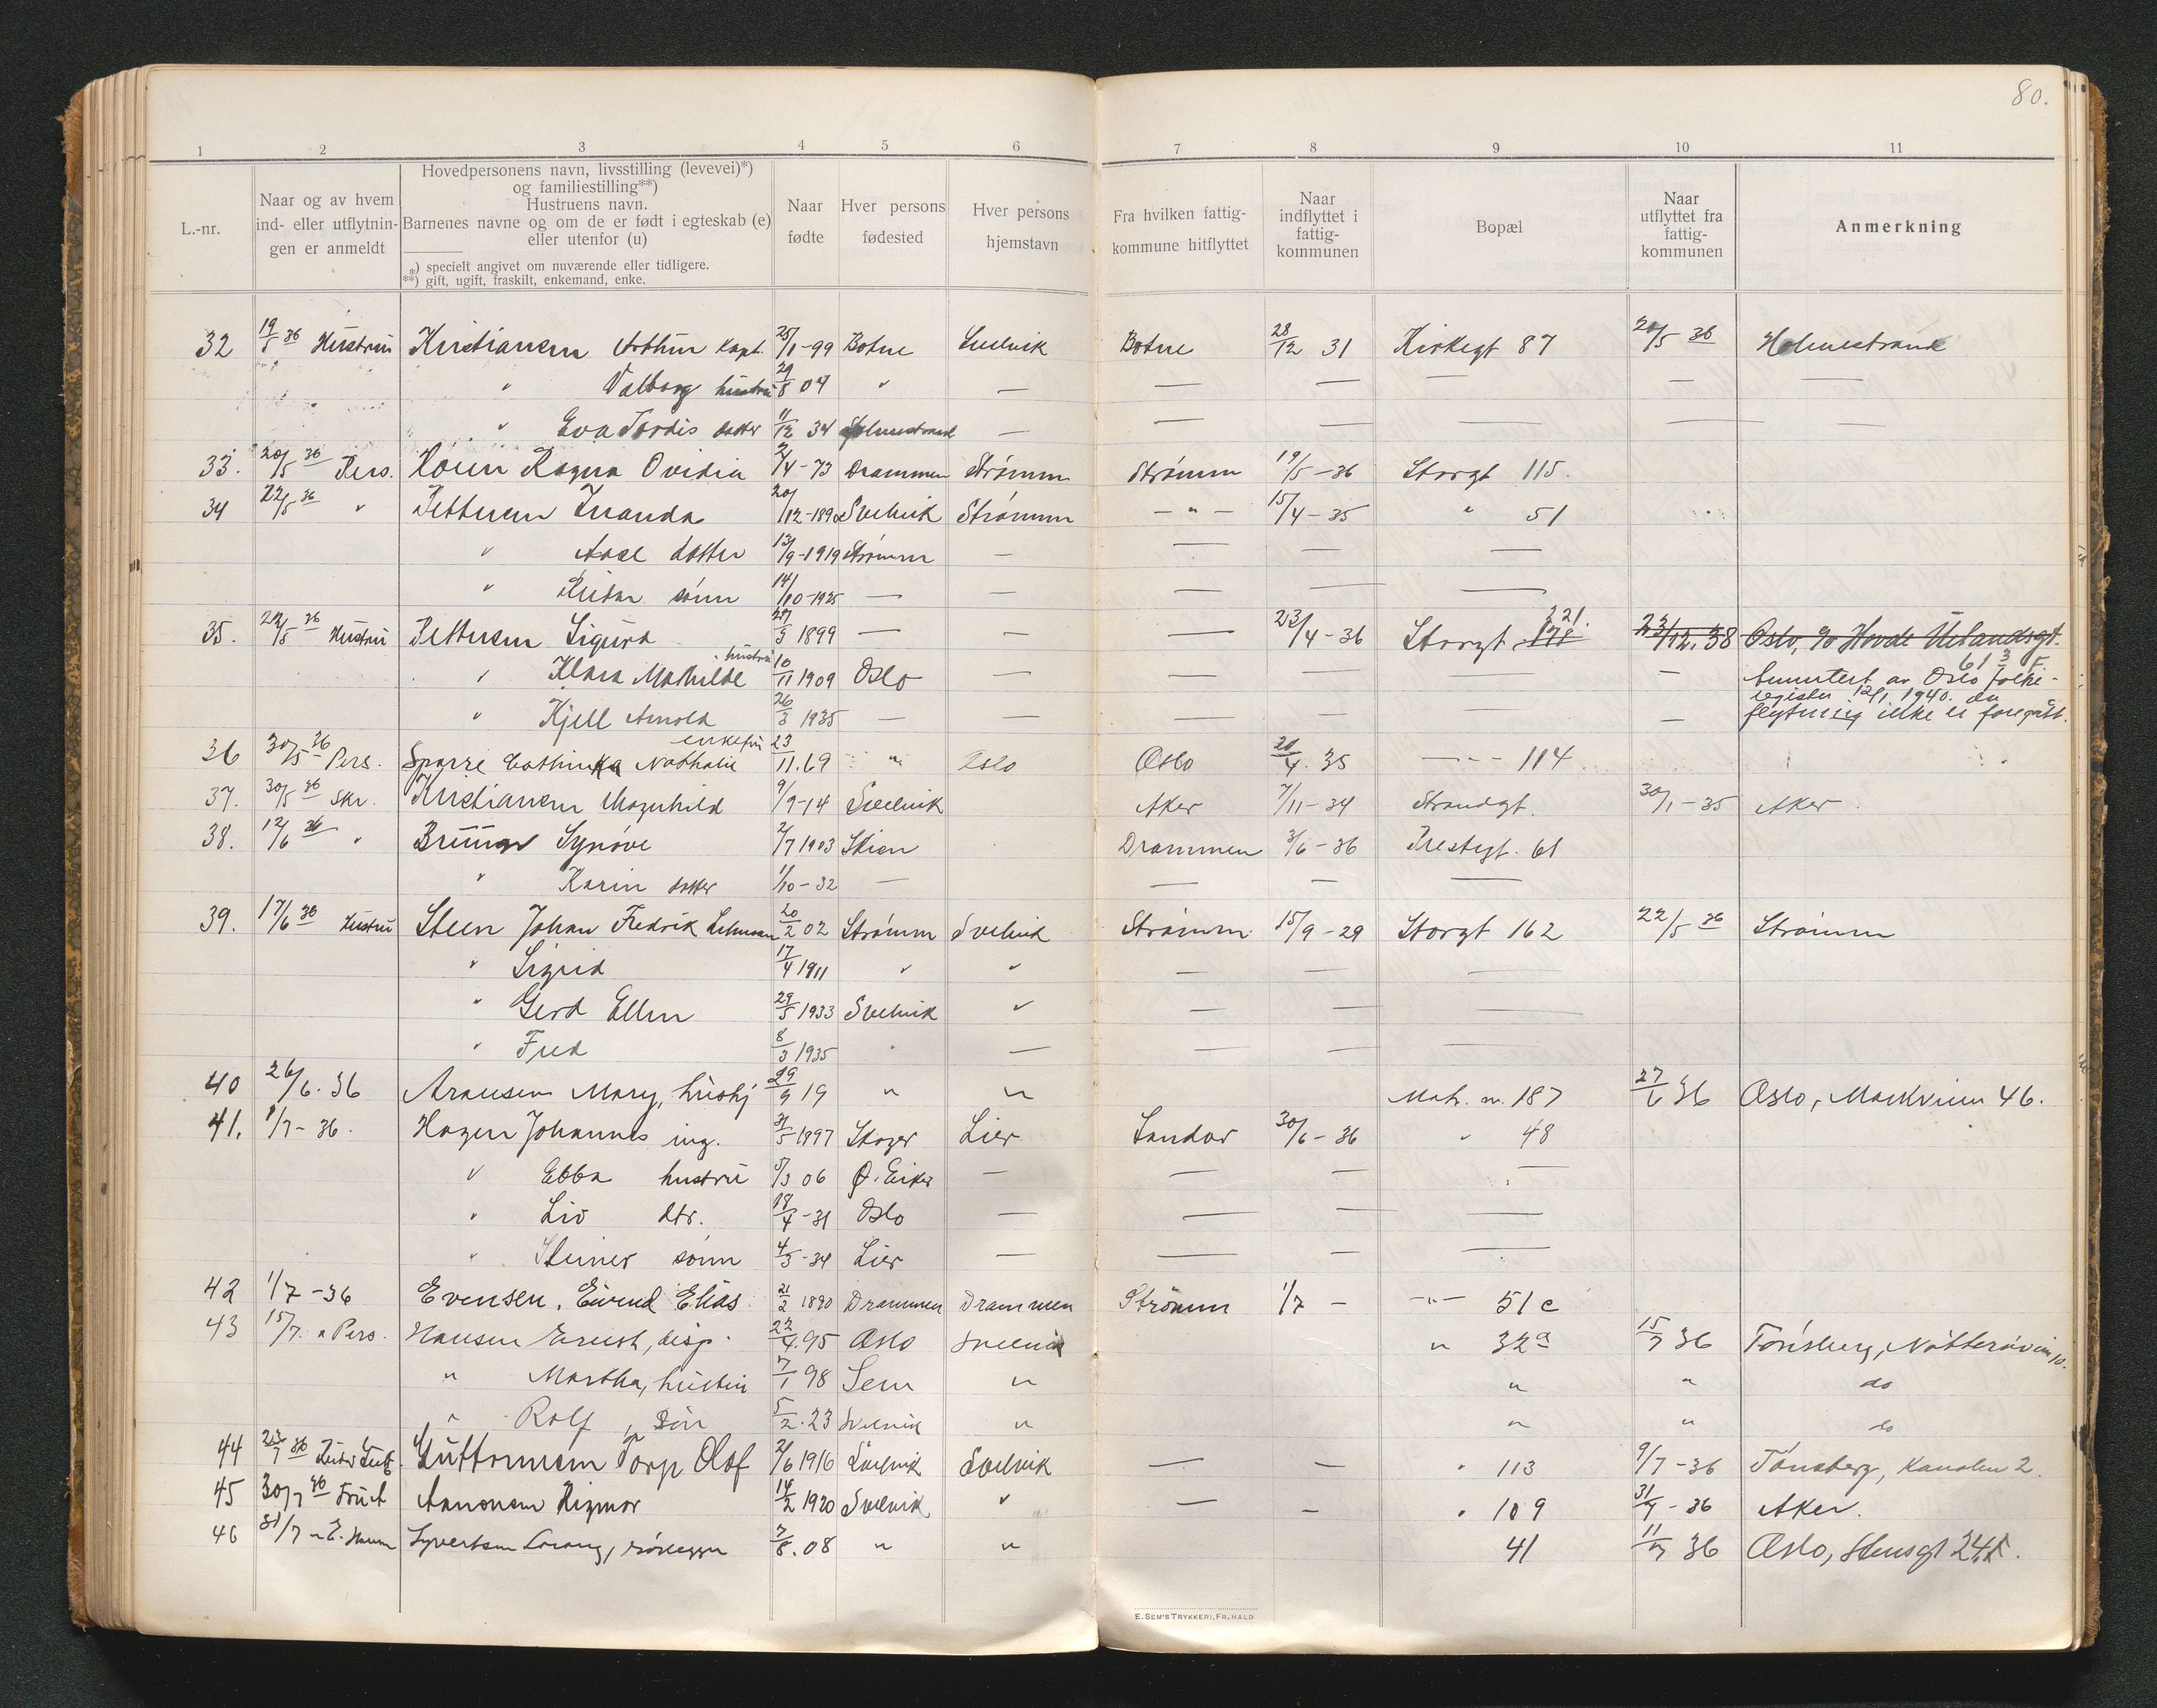 80.
1 2 3 4 5 6 7 8 9 10 11
L.-nr.
Naar og av hvem
ind- eller utflytnin-
gen er anmeldt
Hovedpersonens navn, livsstilling (levevei)*)
og familiestilling**)
Hustruens navn.
Barnenes navne og om de er født i egteskab (e)
eller utenfor (u)
*) specielt angivet om nuværende eller tidligere.
**) gift, ugift, fraskilt, enkemand, enke.
Naar
fødte
Hver persons
fødested
Hver persons
hjemstavn
Fra hvilken fattig-
kommune hitflyttet
Naar
indflyttet i
fattig-
kommunen
Bopæl
Naar
utflyttet fra
fattig-
kommunen
Anmerkning
32 19/5 36 Hustru Kristiansen Arthur Kapt. 25/1-99 Botne Svelvik Botne 28/12 31 Kirkegt 87 20/5 36 Holmestrand
" Valborg hustru 29/8 04 " — — — — — —
" Eva Tordis datter 11/12 34 Holmestrand — — — — — —
33. 20/5 36 Pers. Ragna Ovidia 2/4-73 Drammen Strømm Strømm 19/5-36 Storgt 115.
34 22/5 36 " Pettersen 20/12-189 Svelvik Strømm - " - 15/4-35 " 51
" Aase datter 13/9-1919 Strømm — — — —
" Reidar sønn 14/10-1925 — — — — —
35. 22/5 36 Hustru Pettersen Sigurd 27/3 1899 — — — 23/4-36 Storgt 178 221. 23/12.38 Oslo, c/o Hovde Uelandsgt.
61 3 F.
" Klara Mathilde hustru 10/11 1909 Oslo — — — — — Annulert av Oslo folke-
register 12/1 1940. da
" Kjell Arnold 26/3 1935 — — — — — — flytning ikke er foregått.
36 30/5 36 Pers. Sparre Cathinka Nathalie enkefru 23/11.69 " Oslo Oslo 20/4. 35 - - - 114
37. 30/5 36 Skr. Kristiansen Magnhild 9/9-14 Svelvik Aker 7/11-34 Strandgt. 30/1-35 Aker.
38. 12/6 36 " Bruun Synøve 2/7 1903 Skien Drammen 3/6-36 Prestegt. 61
" Karin datter 1/10-32 — — — —
39. 17/6 36 Hustru Steen Johan Fredrik 20/2 02 Strømm Svelvik Strømm 15/9-29 Storgt 162 22/5 36 Strømm
" Sigrid 17/4 1911 " " — — —
" Gerd Ellen 29/5 1933 Svelvik " — — —
" Fred 8/3 1935 " — — — —
40 26/6. 36 Aronsen Mary, hushj 29/9 19 " " Matr. nr. 187 27/6 36 Oslo, Markveien 46.
41. 1/7-36. Hagen Johannes ing. 31/5-1897 Skoger Lier Sandar 30/6-36 " 48
" Ebba hustru 5/3 06 Ø. Eiker — — — —
" Liv dtr. 18/4-31 Oslo — — — —
" Steiner sønn 4/3-34 Lier — — — —
42 1/7-36 Evensen, Eivind Elias. 21/2 1890 Drammen Drammen Strømm 1/7 - - " - 51 c
43 15/7. " Pers. Hansen Ernst, disp. 22/4.95 Oslo Svelvik " 32a 15/7 36 Tønsberg, Nøtterøveien 10.
" Martha, hustru 7/1 98 Sem " " " do
" Rolf, søn 5/2.23 Svelvik " " " do
44 23/7 36 Guttormsen Torp Olaf 2/6 1916 Svelvik Svelvik — — " 113 9/7-36 Tønsberg, Kanalen 2.
45 30/7 36 Aanonsen Rigmor 14/2 1920 Svelvik " — — " 109 31/7-36 Aker.
46 31/7 " Syvertsen 7/8.08 " " 41 11/7 36 Oslo, Stensgt 24
E. SEM'S TRYKKERI, FR.HALD